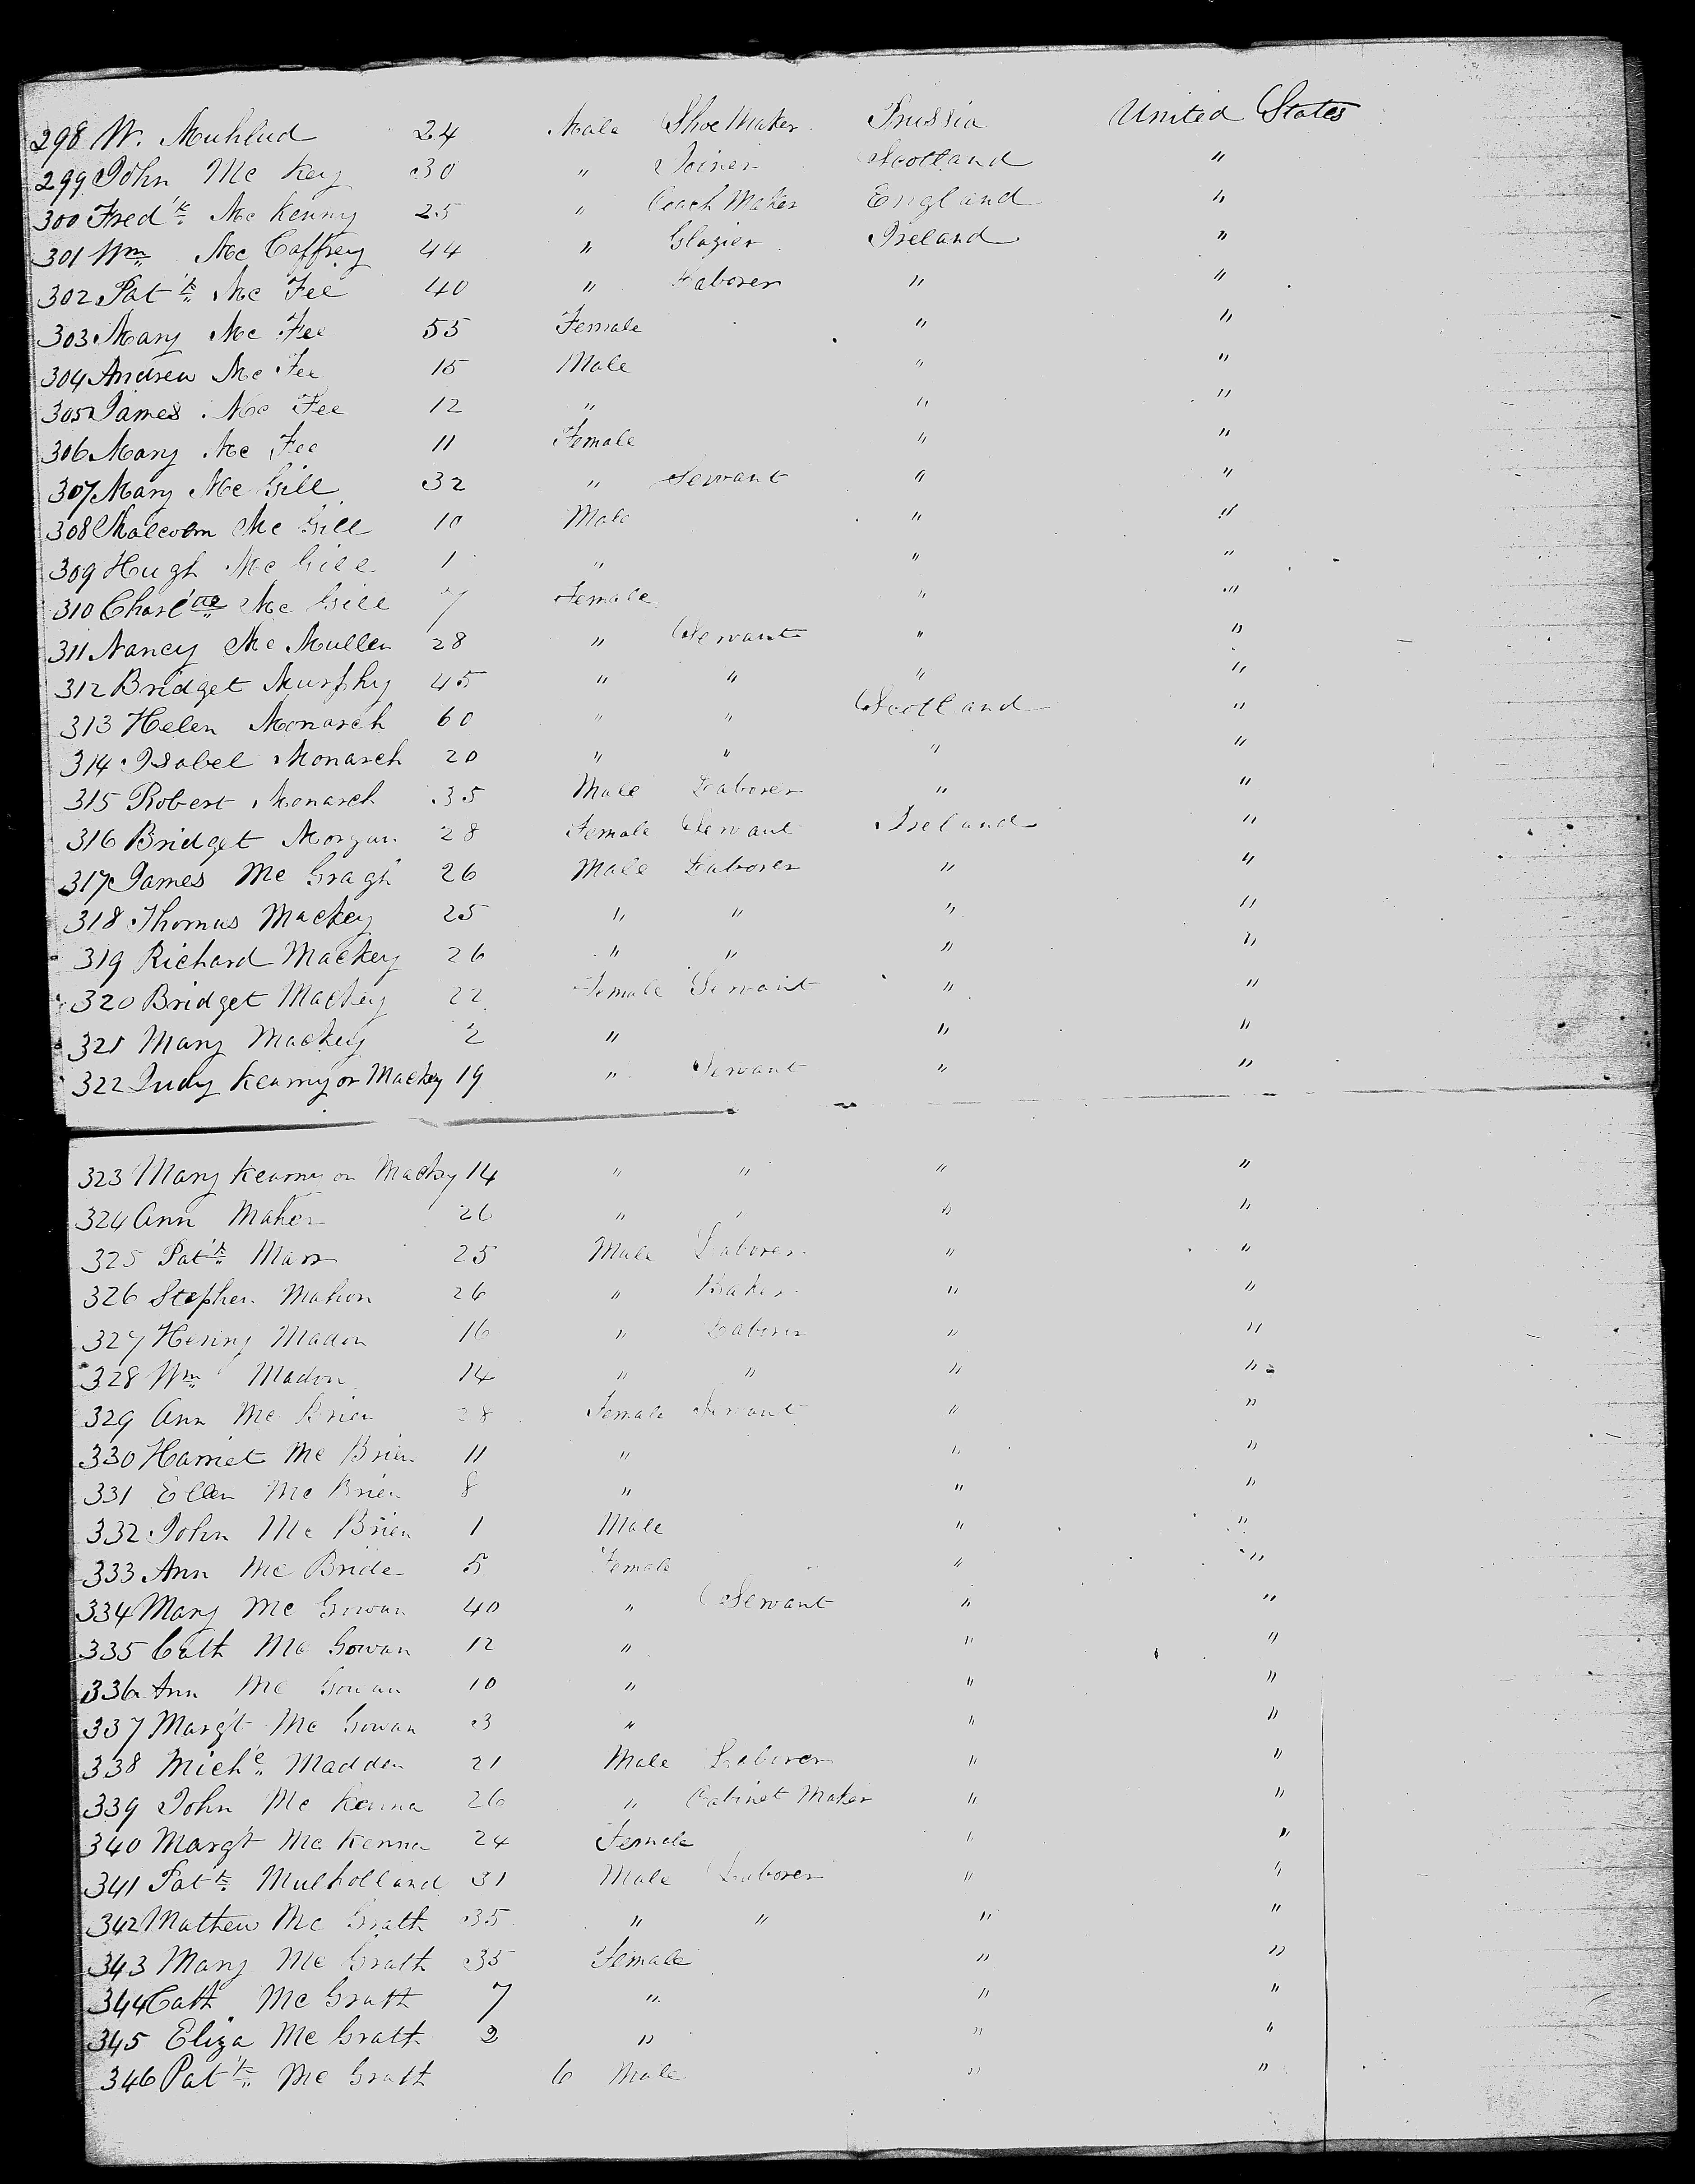 298 W. Muhlud 24 Male Shoe Maker Prussia United States
299 John Mc Key 30 " Joiner Scotland "
300 Fred'k Mc Kenny 25 " Coach Maker England "
301 Wm Mc Caffrey 44 " Glazier Ireland "
302 Pat'k Mc Fee 40 " Laborer " "
303 Mary Mc Fee 55 Female " "
304 Andrew Mc Fee 15 Male " "
305 James Mc Fee 12 " " "
306 Mary Mc Fee 11 Female " "
307 Mary Mc Gill 32 " Servant " "
308 Malcolm Mc Gill 10 Male " "
309 Hugh Mc Gill 1 " " "
310 Charl'tte Mc Gill 7 Female " "
311 Nancy Mc Mullen 28 " Servant " "
312 Bridget Murphy 45 " " " "
313 Helen Monarch 60 " " Scotland "
314 Isabel Monarch 20 " " " "
315 Robert Monarch 35 Male Laborer " "
316 Bridget Morgan 28 Female Servant Ireland "
317 James Mc Gragh 26 Male Laborer " "
318 Thomas Mackey 25 " " " "
319 Richard Mackey 26 " " " "
320 Bridget Mackey 22 Female Servant " "
321 Mary Mackey 2 " " "
322 Judy Kearny or Mackey 19 " Servant " "
323 Mary Kearny or Mackey 14 " " " "
324 Ann Maher 26 " " " "
325 Pat'k Marr 25 Male Laborer " "
326 Stephen Mahon 26 " Baker " "
327 Henry Madon 16 " Laborer " "
328 Wm Madon 14 " " " "
329 Ann Mc Brien 28 Female Servant " "
330 Harriet Mc Brien 11 " " "
331 Ellen Mc Brien 8 " " "
332 John Mc Brien 1 Male " "
333 Ann Mc Bride 5 Female " "
334 Mary Mc Gowan 40 " Servant " "
335 Cath Mc Gowan 12 " " "
336 Ann Mc Gowan 10 " " "
337 Marg't Mc Gowan 3 " " "
338 Mich'l Madden 21 Male Laborer " "
339 John Mc Kenna 26 " Cabinet Maker " "
340 Marg't Mc Kenna 24 Female " "
341 Pat'k Mulholland 31 Male Laborer " "
342 Mathew Mc Grath 35 " " " "
343 Mary Mc Grath 35 Female " "
344 Cath Mc Grath 7 " " "
345 Eliza Mc Grath 2 " " "
346 Pat'k Mc Grath 6 Male " "